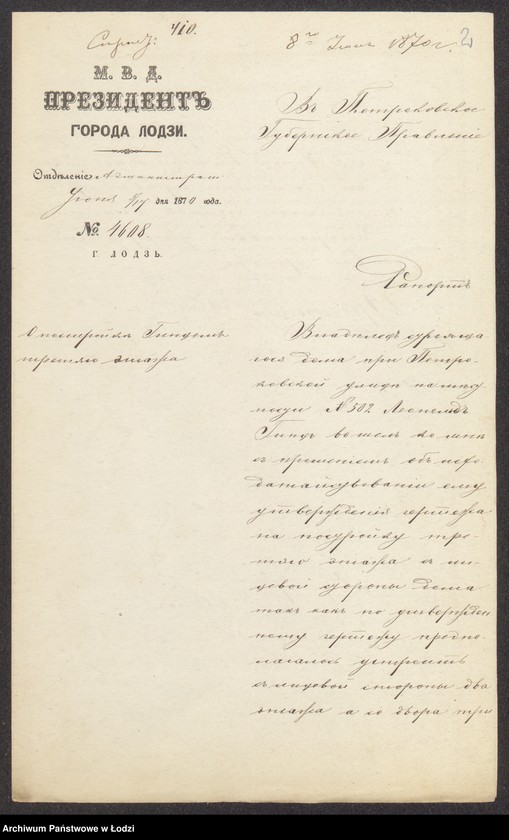 410.
8го Іюля 1870 г.
2
М. В. Д.
ПРЕЗИДЕНТЪ
ГОРОДА ЛОДЗИ.
Отдѣленіе Администрат
Іюня 5/17 дня 1870 года.
№ 4608.
Г. ЛОДЗЬ.
Въ Петроковское
Губернское Правленіе
Рапортъ
О постройкѣ Гинцомъ
третяго этажа
Владѣлецъ
дома при Петро-
ковской улицѣ
подъ № 502 Леопольдъ
вошелъ ко мнѣ
съ прошеніемъ объ исхо-
датайствованіи ему
утвержденія чертежа
на постройку тре-
тяго этажа съ ли-
цовой стороны дома
такъ какъ по утвержден
ному чертежу предпо-
лагалось устроить
съ лицовой стороны два
этажа а со двора три
Archiwum Państwowe w Łodzi